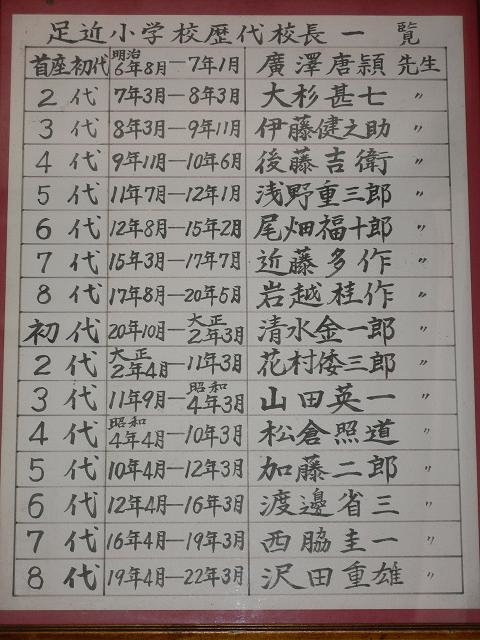 足近小学校歴代校長一覧
首座初代 明治6年8月―7年1月 廣澤唐頴 先生
2代 7年3月―8年3月 大杉甚七 〃
3代 8年3月―9年11月 伊藤健之助 〃
4代 9年11月―10年6月 後藤吉衛 〃
5代 11年7月―12年1月 浅野重三郎 〃
6代 12年8月―15年2月 尾畑福十郎 〃
7代 15年3月―17年7月 近藤多作 〃
8代 17年8月―20年5月 岩越桂作 〃
初代 20年10月―大正2年3月 清水金一郎 〃
2代 大正2年4月―11年3月 花村倭三郎 〃
3代 11年9月―昭和4年3月 山田英一 〃
4代 昭和4年4月―10年3月 松倉照道 〃
5代 10年4月―12年3月 加藤二郎 〃
6代 12年4月―16年3月 渡邊省三 〃
7代 16年4月―19年3月 西脇圭一 〃
8代 19年4月―22年3月 沢田重雄 〃